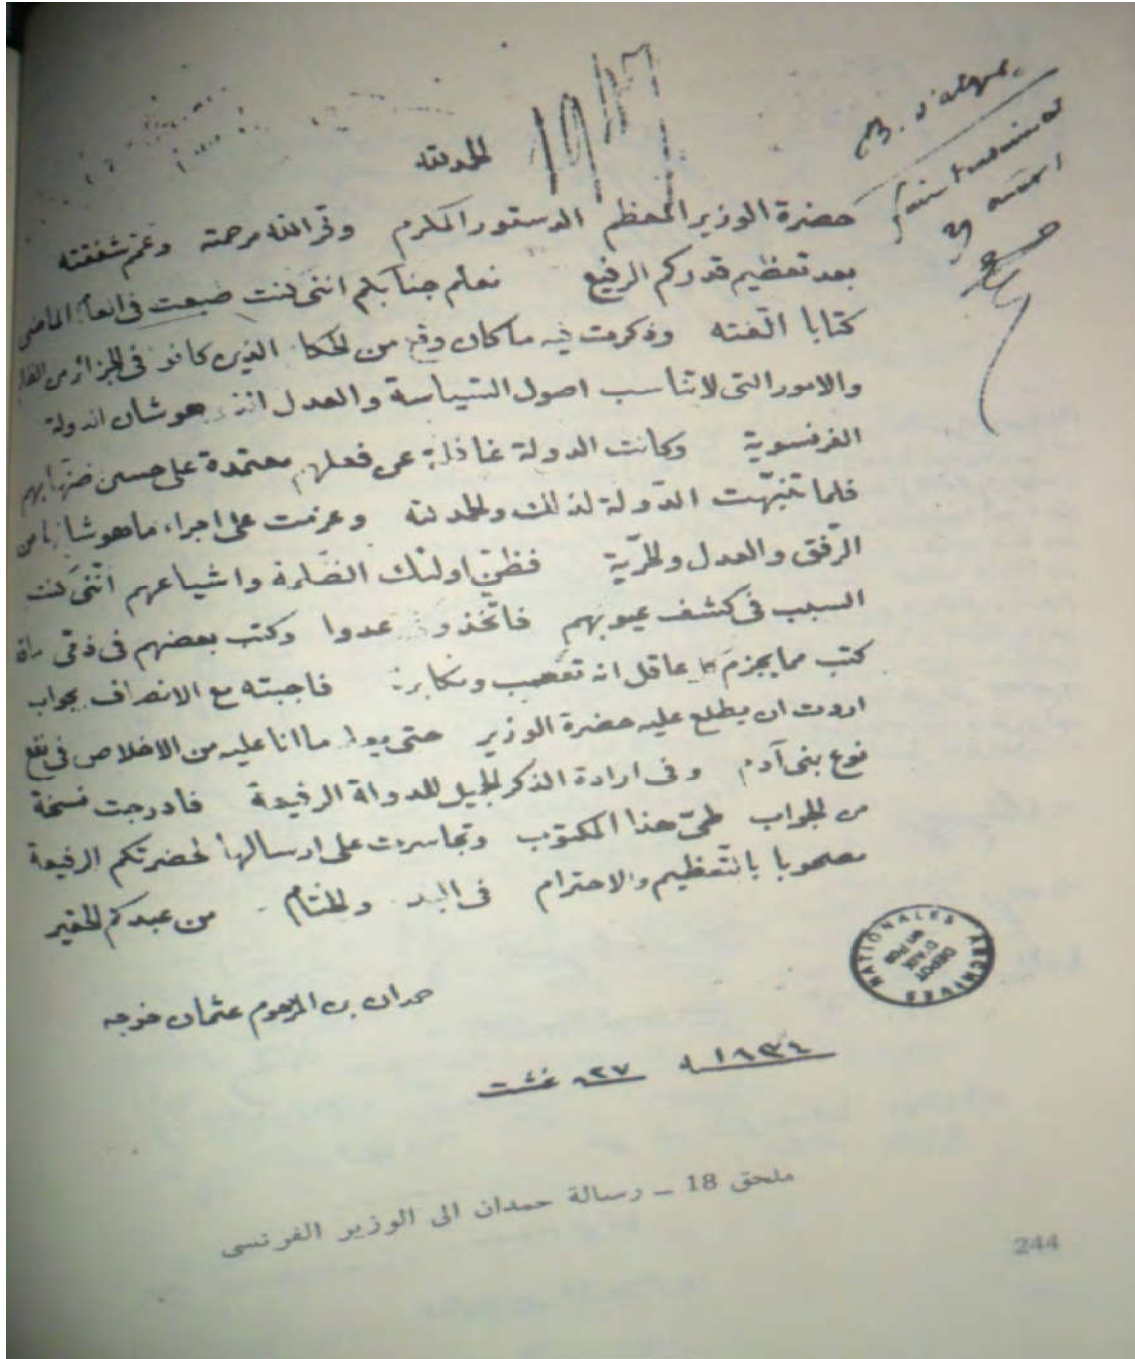 الحمد لله
حضرة الوزير المعظم الدستور المكرم وفر الله مرحمته وعمّم شفقته
بعد تعظيم قدركم الرفيع نعلم جنابكم انني كنت ضبعت في العام الماضي
كتابا الّفته وذكرت فيه ما كان وقع من الحكام الذين كانو في الجزائر من
والامور التي لا تناسب اصول السّياسة والعدل الذي هو شان الدولة
الفرنسوية وكانت الدولة غافلة عن فعلهم معتمدة على حسن ضنها بهم
فلما تنبّهت الدّولة لذلك والحمد لله وعزمت على اجراء ما هو شانها من
الرّفق والعدل والحرّية فظنّ اولئك الظّلمة واشياعهم انّني كنت
السبب في كشف عيوبهم فاتّخذوني عدوا وكتب بعضهم في ذمّي
كتب مما يجزم كل عاقل انه تعصب ومكابرة فاجبته مع الانصراف بجواب
اردت ان يطلع عليه حضرة الوزير حتى ما انا عليه من الاخلاص في نفع
نوع بني آدم وفي ارادة الذكر الجميل للدولة الرفيعة فادرجت نسخة
من الجواب طيّ هذا المكتوب وتجاسرت على ارسالها لحضرتكم الرفيعة
مصحوبا بالتّعظيم والاحترام في البدء والختام من عبدكم الحقير
حمدان بن المرحوم عثمان خوجه
١٨٣٤ ٢٧ غشت
ARCHIVES NATIONALES
DEPOT
D'AIX
ملحق 18 ــ رسالة حمدان الى الوزير الفرنسي
244